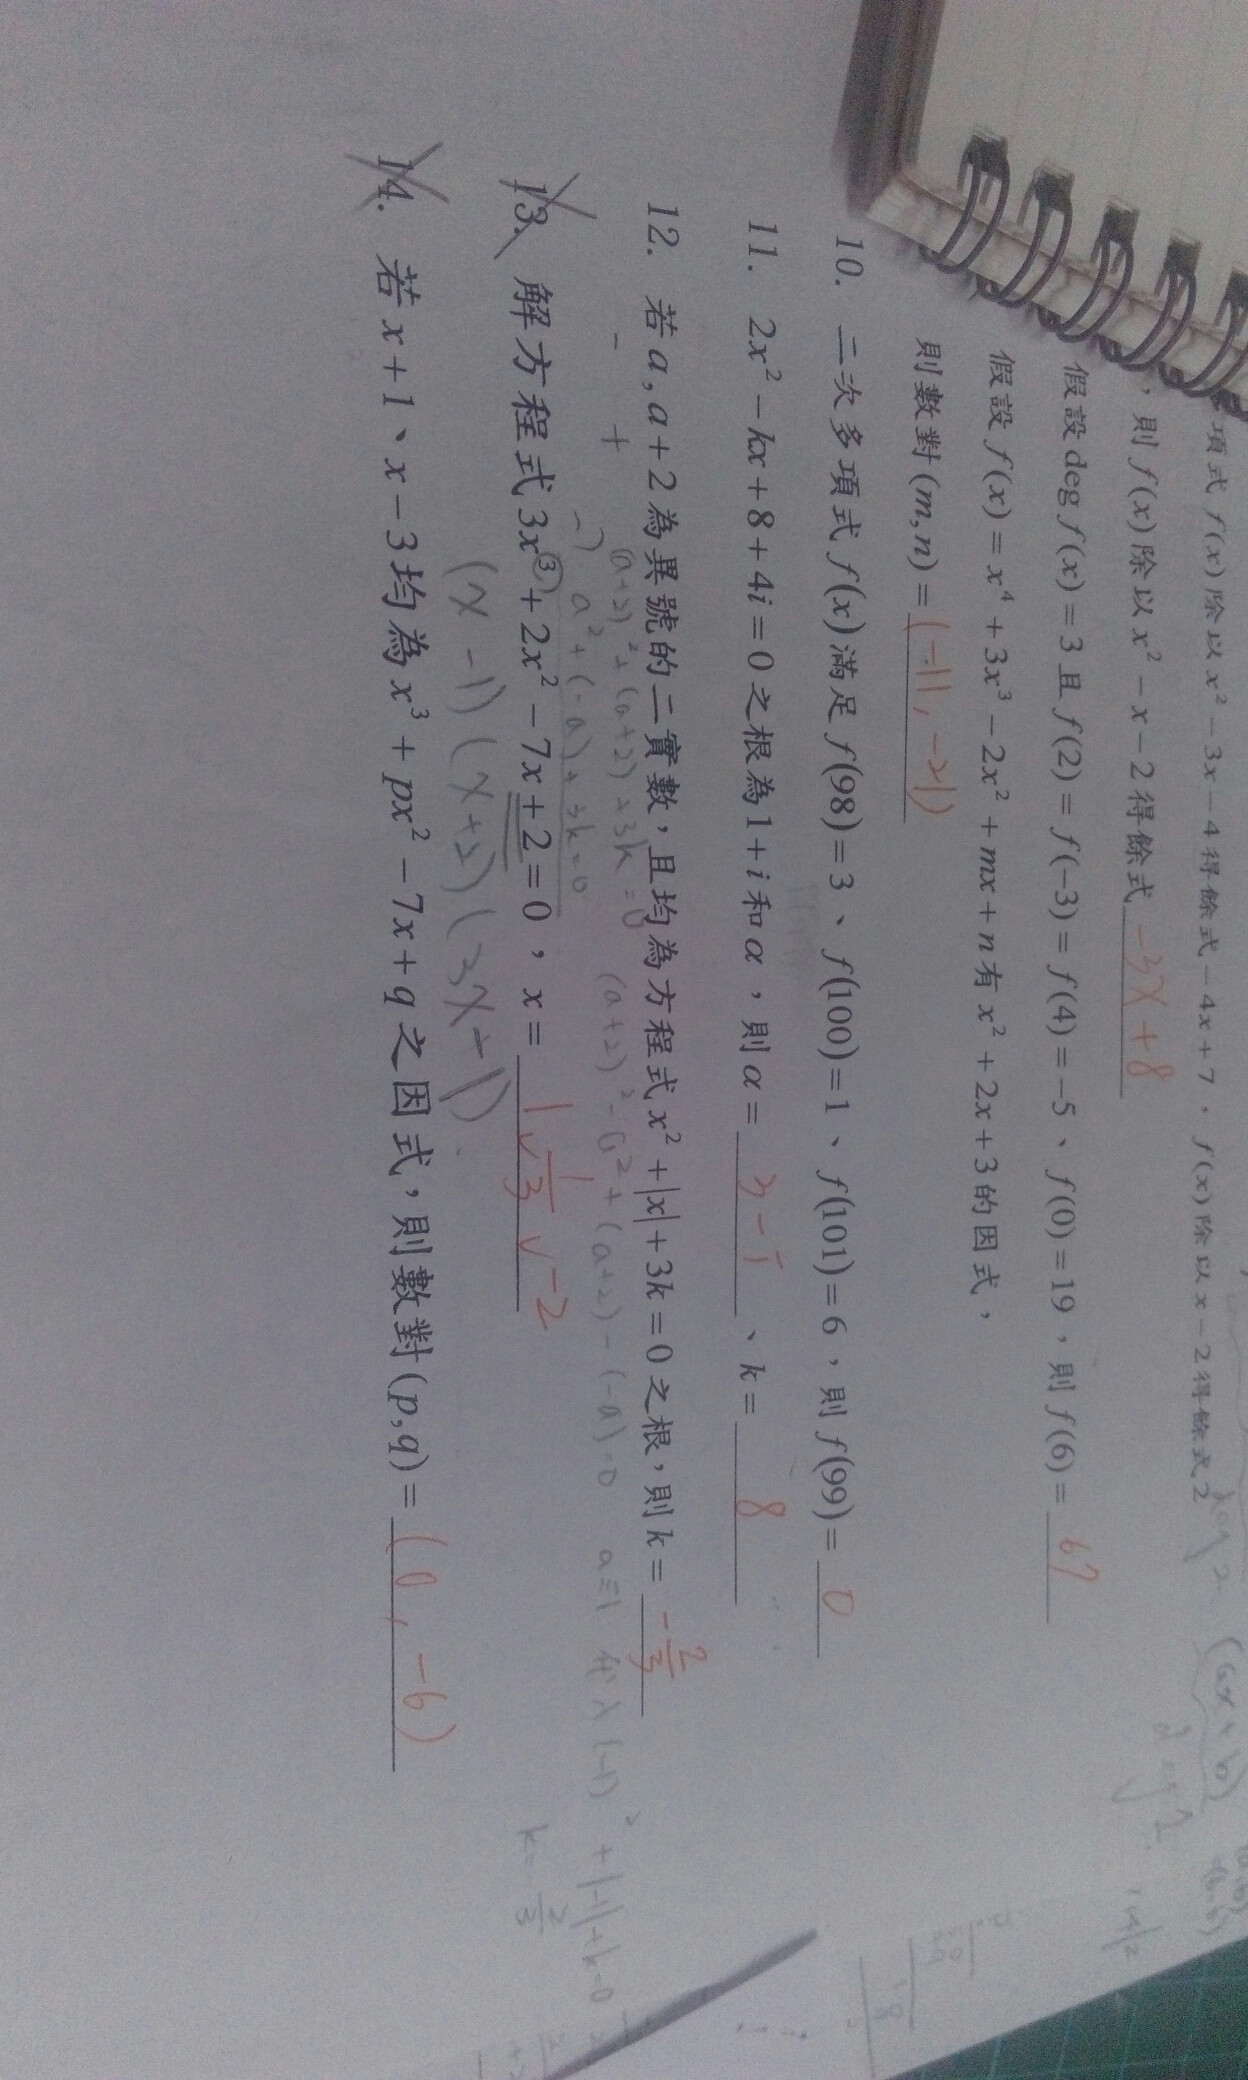 項式 f(x) 除以 x² − 3x − 4 得餘式 − 4x + 7，f(x) 除以 x − 2 得餘式 2
，則 f(x) 除以 x² − x − 2 得餘式 -3x+8
假設 deg f(x) = 3 且 f(2) = f(−3) = f(4) = −5、f(0) = 19，則 f(6) = 67
假設 f(x) = x⁴ + 3x³ − 2x² + mx + n 有 x² + 2x + 3 的因式，
則數對 (m, n) = (-11, -21)
10. 二次多項式 f(x) 滿足 f(98) = 3、f(100) = 1、f(101) = 6，則 f(99) = 0
11. 2x² − kx + 8 + 4i = 0 之根為 1 + i 和 α，則 α = 3-i、k = 8
12. 若 a, a + 2 為異號的二實數，且均為方程式 x² + |x| + 3k = 0 之根，則 k = -2/3
- +
(a+2)² + (a+2) + 3k = 0 (a+2)² - a² + (a+2) - (-a) = 0 a=-1 代入 (-1)² + |-1| + k = 0
-) a² + (-a) + 3k = 0
k = -2/3
13. 解方程式 3x³ + 2x² − 7x + 2 = 0，x = 1 v 1/3 v -2
(x-1)(x+2)(3x-1)
14. 若 x + 1、x − 3 均為 x³ + px² − 7x + q 之因式，則數對 (p, q) = (0, -6)